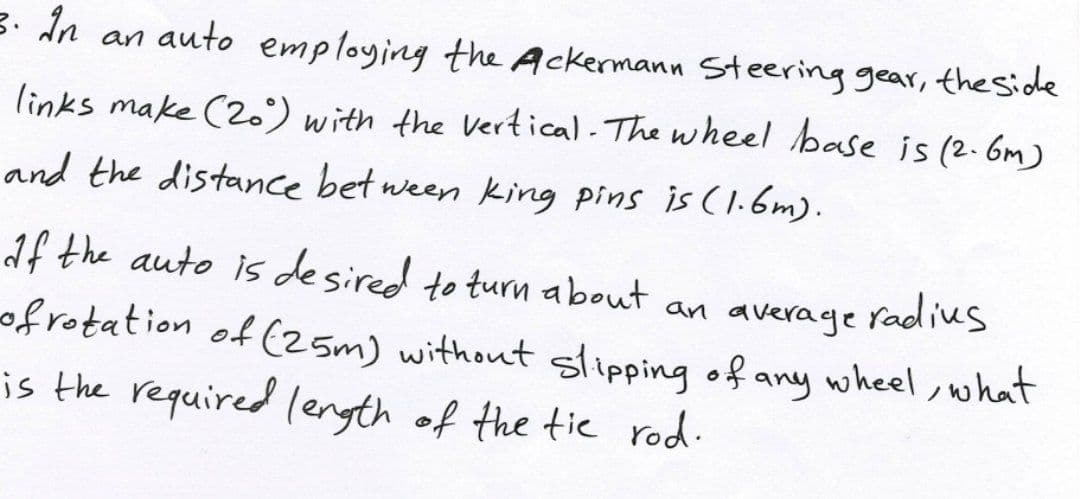 3. In an auto employing the Ackermann Steering gear, the side
links make (20°) with the vertical. The wheel base is (2.6m)
and the distance between king pins is (1.6m).
If the auto is desired to turn about an average radius
of rotation of (25m) without slipping of any wheel, what
is the required length of the tie rod.